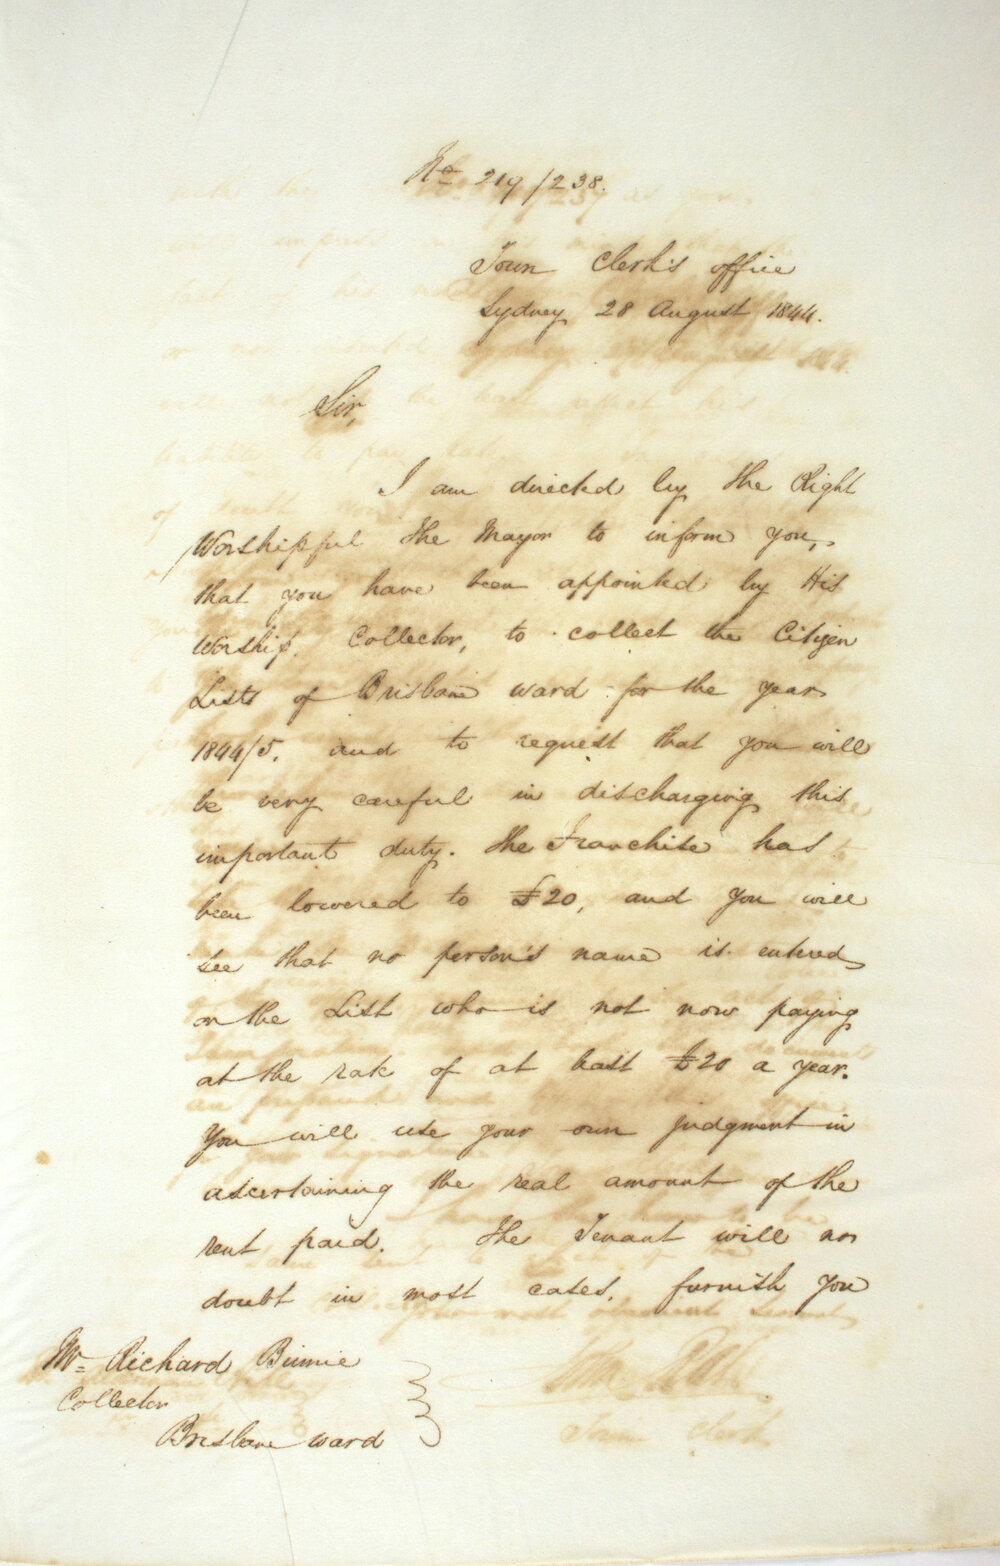 No 219/238.
Town Clerk's office
Sydney 28 August 1844.
Sir,
I am directed by the Right
Worshipful the Mayor to inform you,
that you have been appointed by His
Worship. Collector, to collect the Citizen
Lists of Brisbane ward for the year
1844/5. and to request that you will
be very careful in discharging this
important duty. The Franchise has
been lowered to £20, and you will
see that no person's name is entered
on the List who is not now paying
at the rate of at least £20 a year.
You will use your own judgment in
ascertaining the real amount of the
rent paid. The Tenant will no
doubt in most cases, furnish you
Mr Richard Binnie
Collector
Brisbane ward